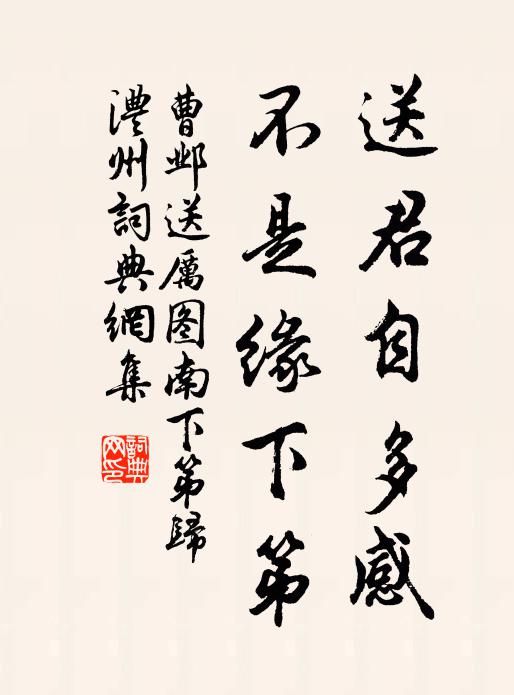 送君自多感
不是缘下第
曹邺送厲图南下第歸
澧州詞典網集
詞典
网印